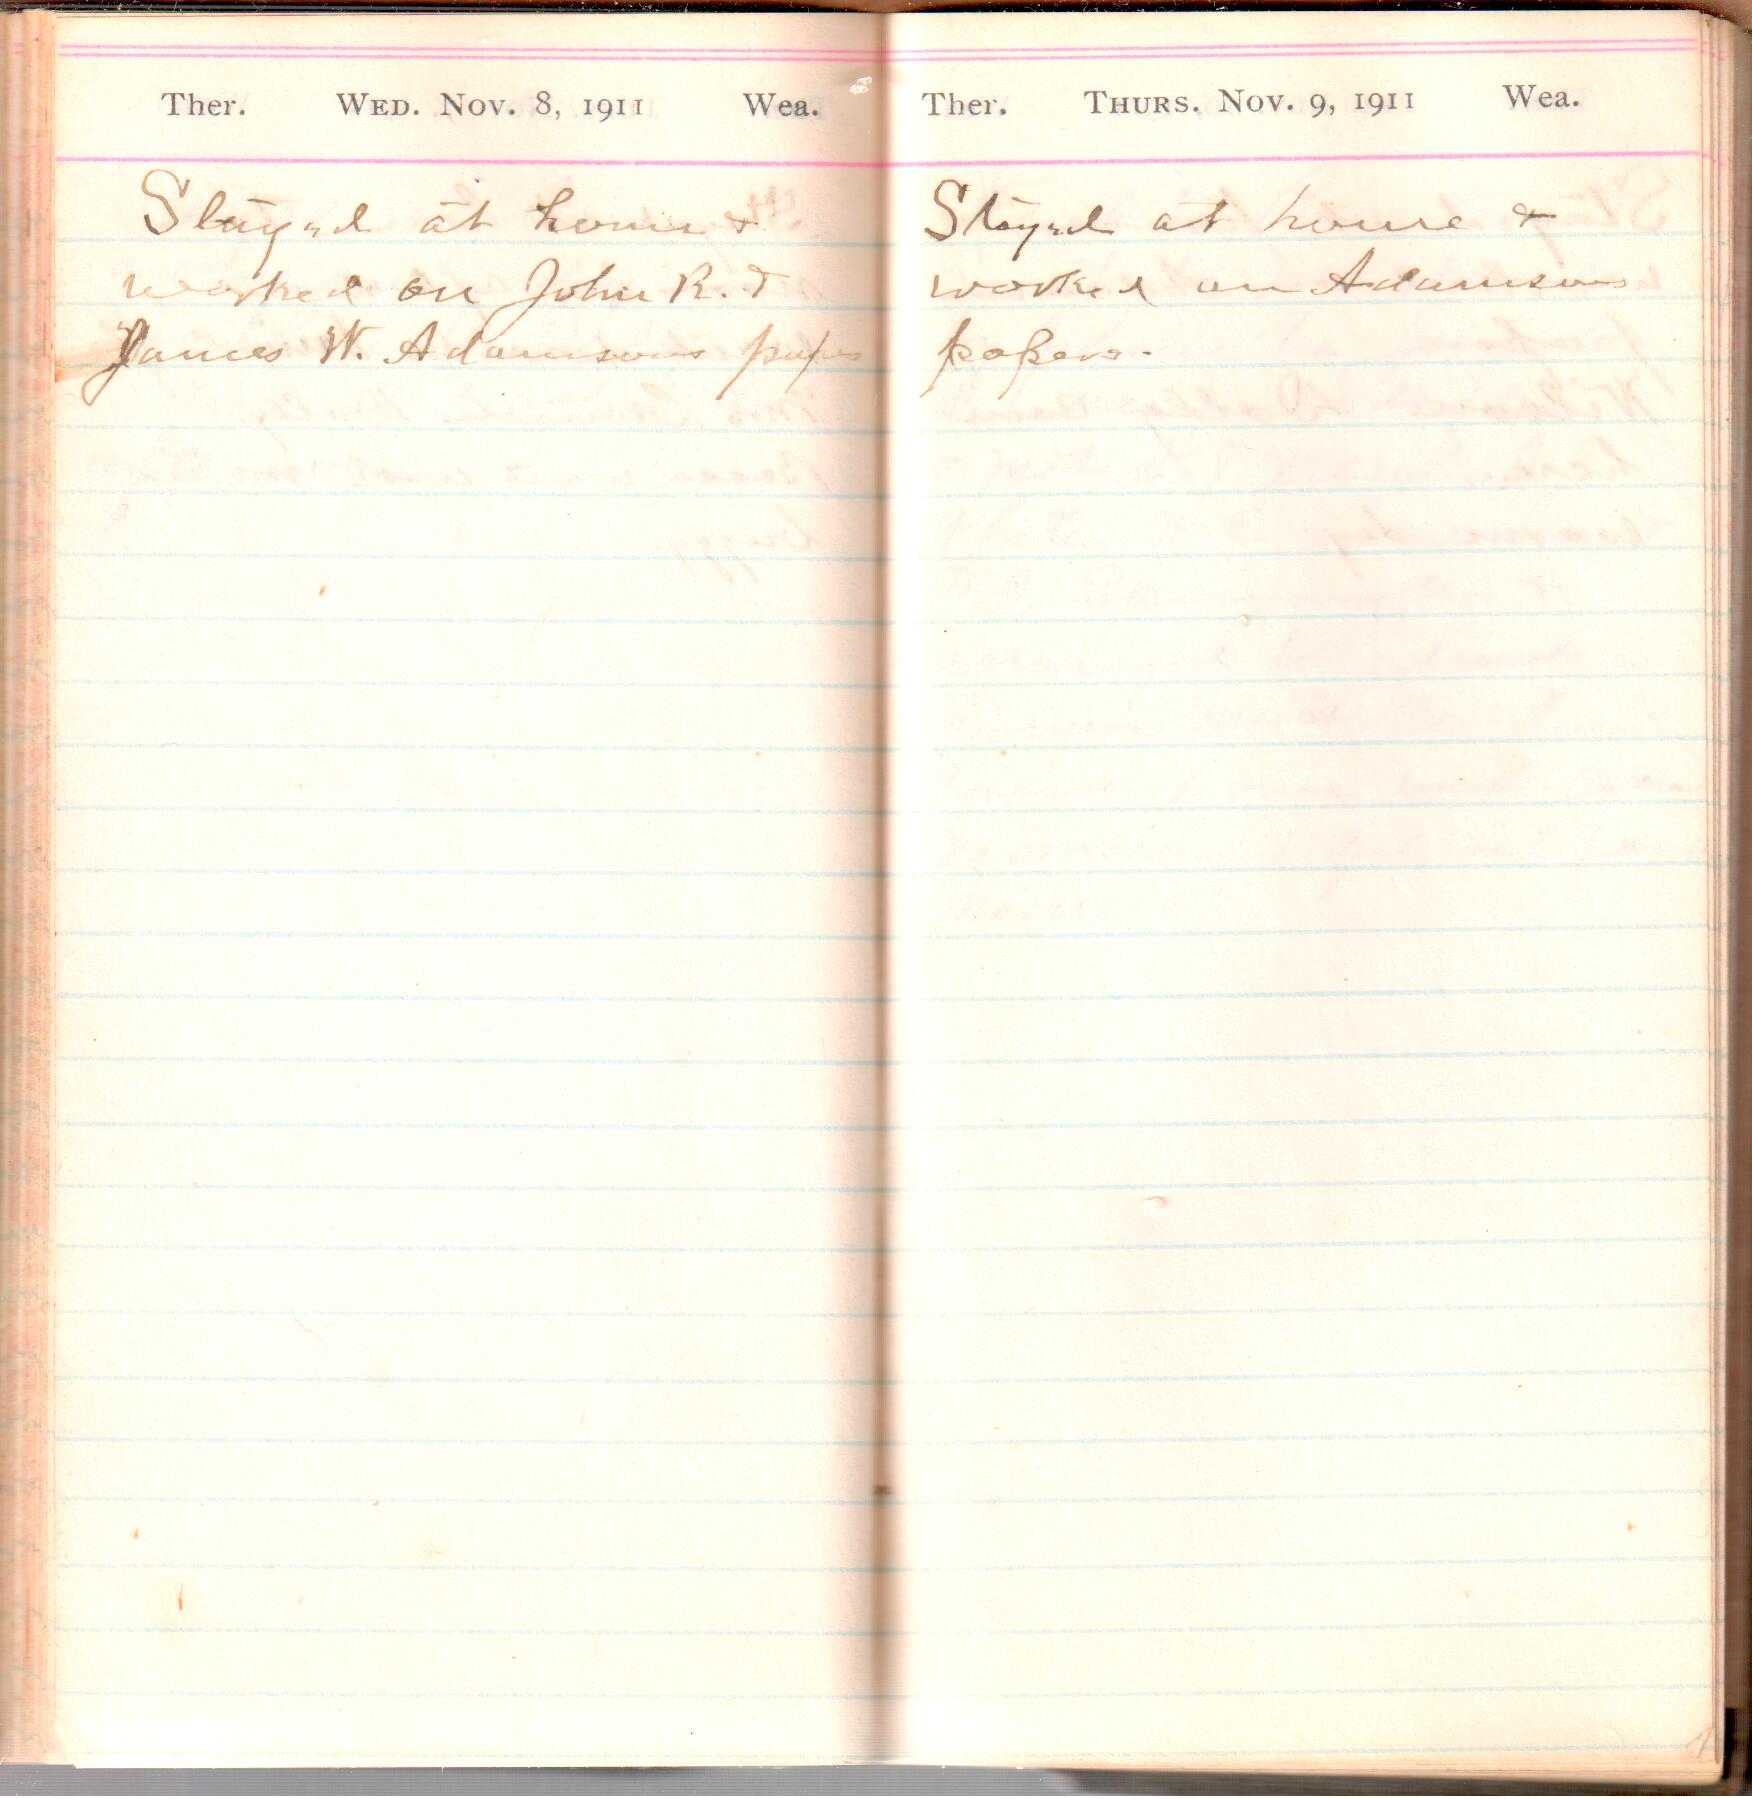 Ther. WED. NOV. 8, 1911 Wea.
Stayed at home &
worked on John R. &
James W. Adamsons papers
Ther. THURS. NOV. 9, 1911 Wea.
Stayed at home &
worked on Adamsons
papers.